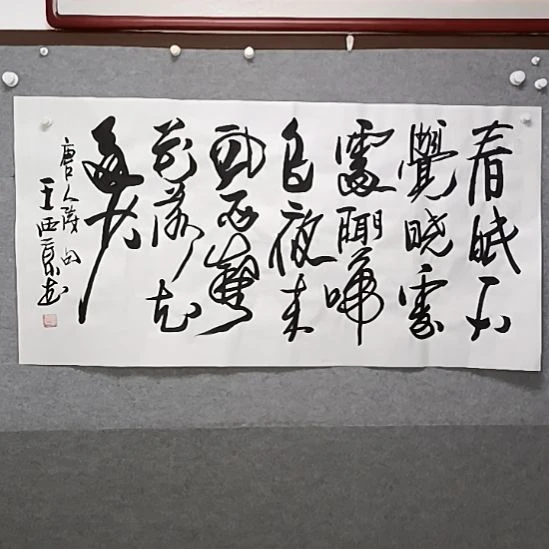 春眠不
覺晓處
處聞啼
鳥夜來
風雨聲
花落知
多少
唐人詩
王西